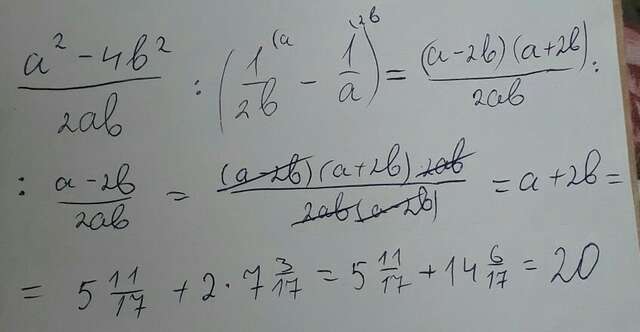 (a² - 4b²)/(2ab) : (1/(2b) ⁽ᵃ - 1/a ⁽²ᵇ) = ((a-2b)(a+2b))/(2ab) :
: (a-2b)/(2ab) = ((a-2b)(a+2b) 2ab)/(2ab(a-2b)) = a+2b =
= 5 11/17 + 2·7 3/17 = 5 11/17 + 14 6/17 = 20